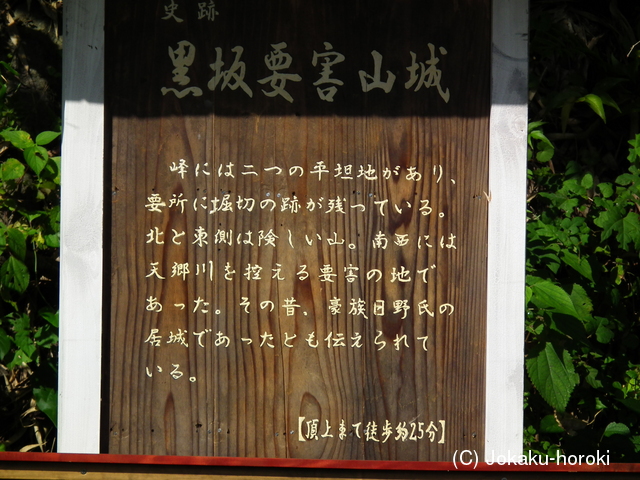 史跡
黒坂要害山城
峰には二つの平坦地があり、
要所に堀切の跡が残っている。
北と東側は険しい山。南西には
天郷川を控える要害の地で
あった。その昔、豪族日野氏の
居城であったとも伝えられて
いる。
【頂上まで徒歩約25分】
(C) Jokaku-horoki